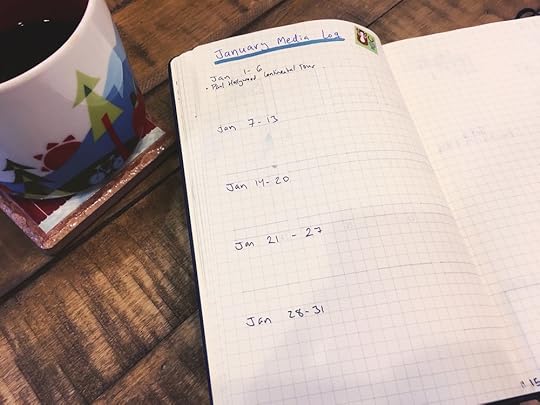 January Media Log
Jan 1-6
• Paul Hollywood Continental Tour
Jan 7-13
Jan 14-20
Jan 21 - 27
Jan 28-31
15